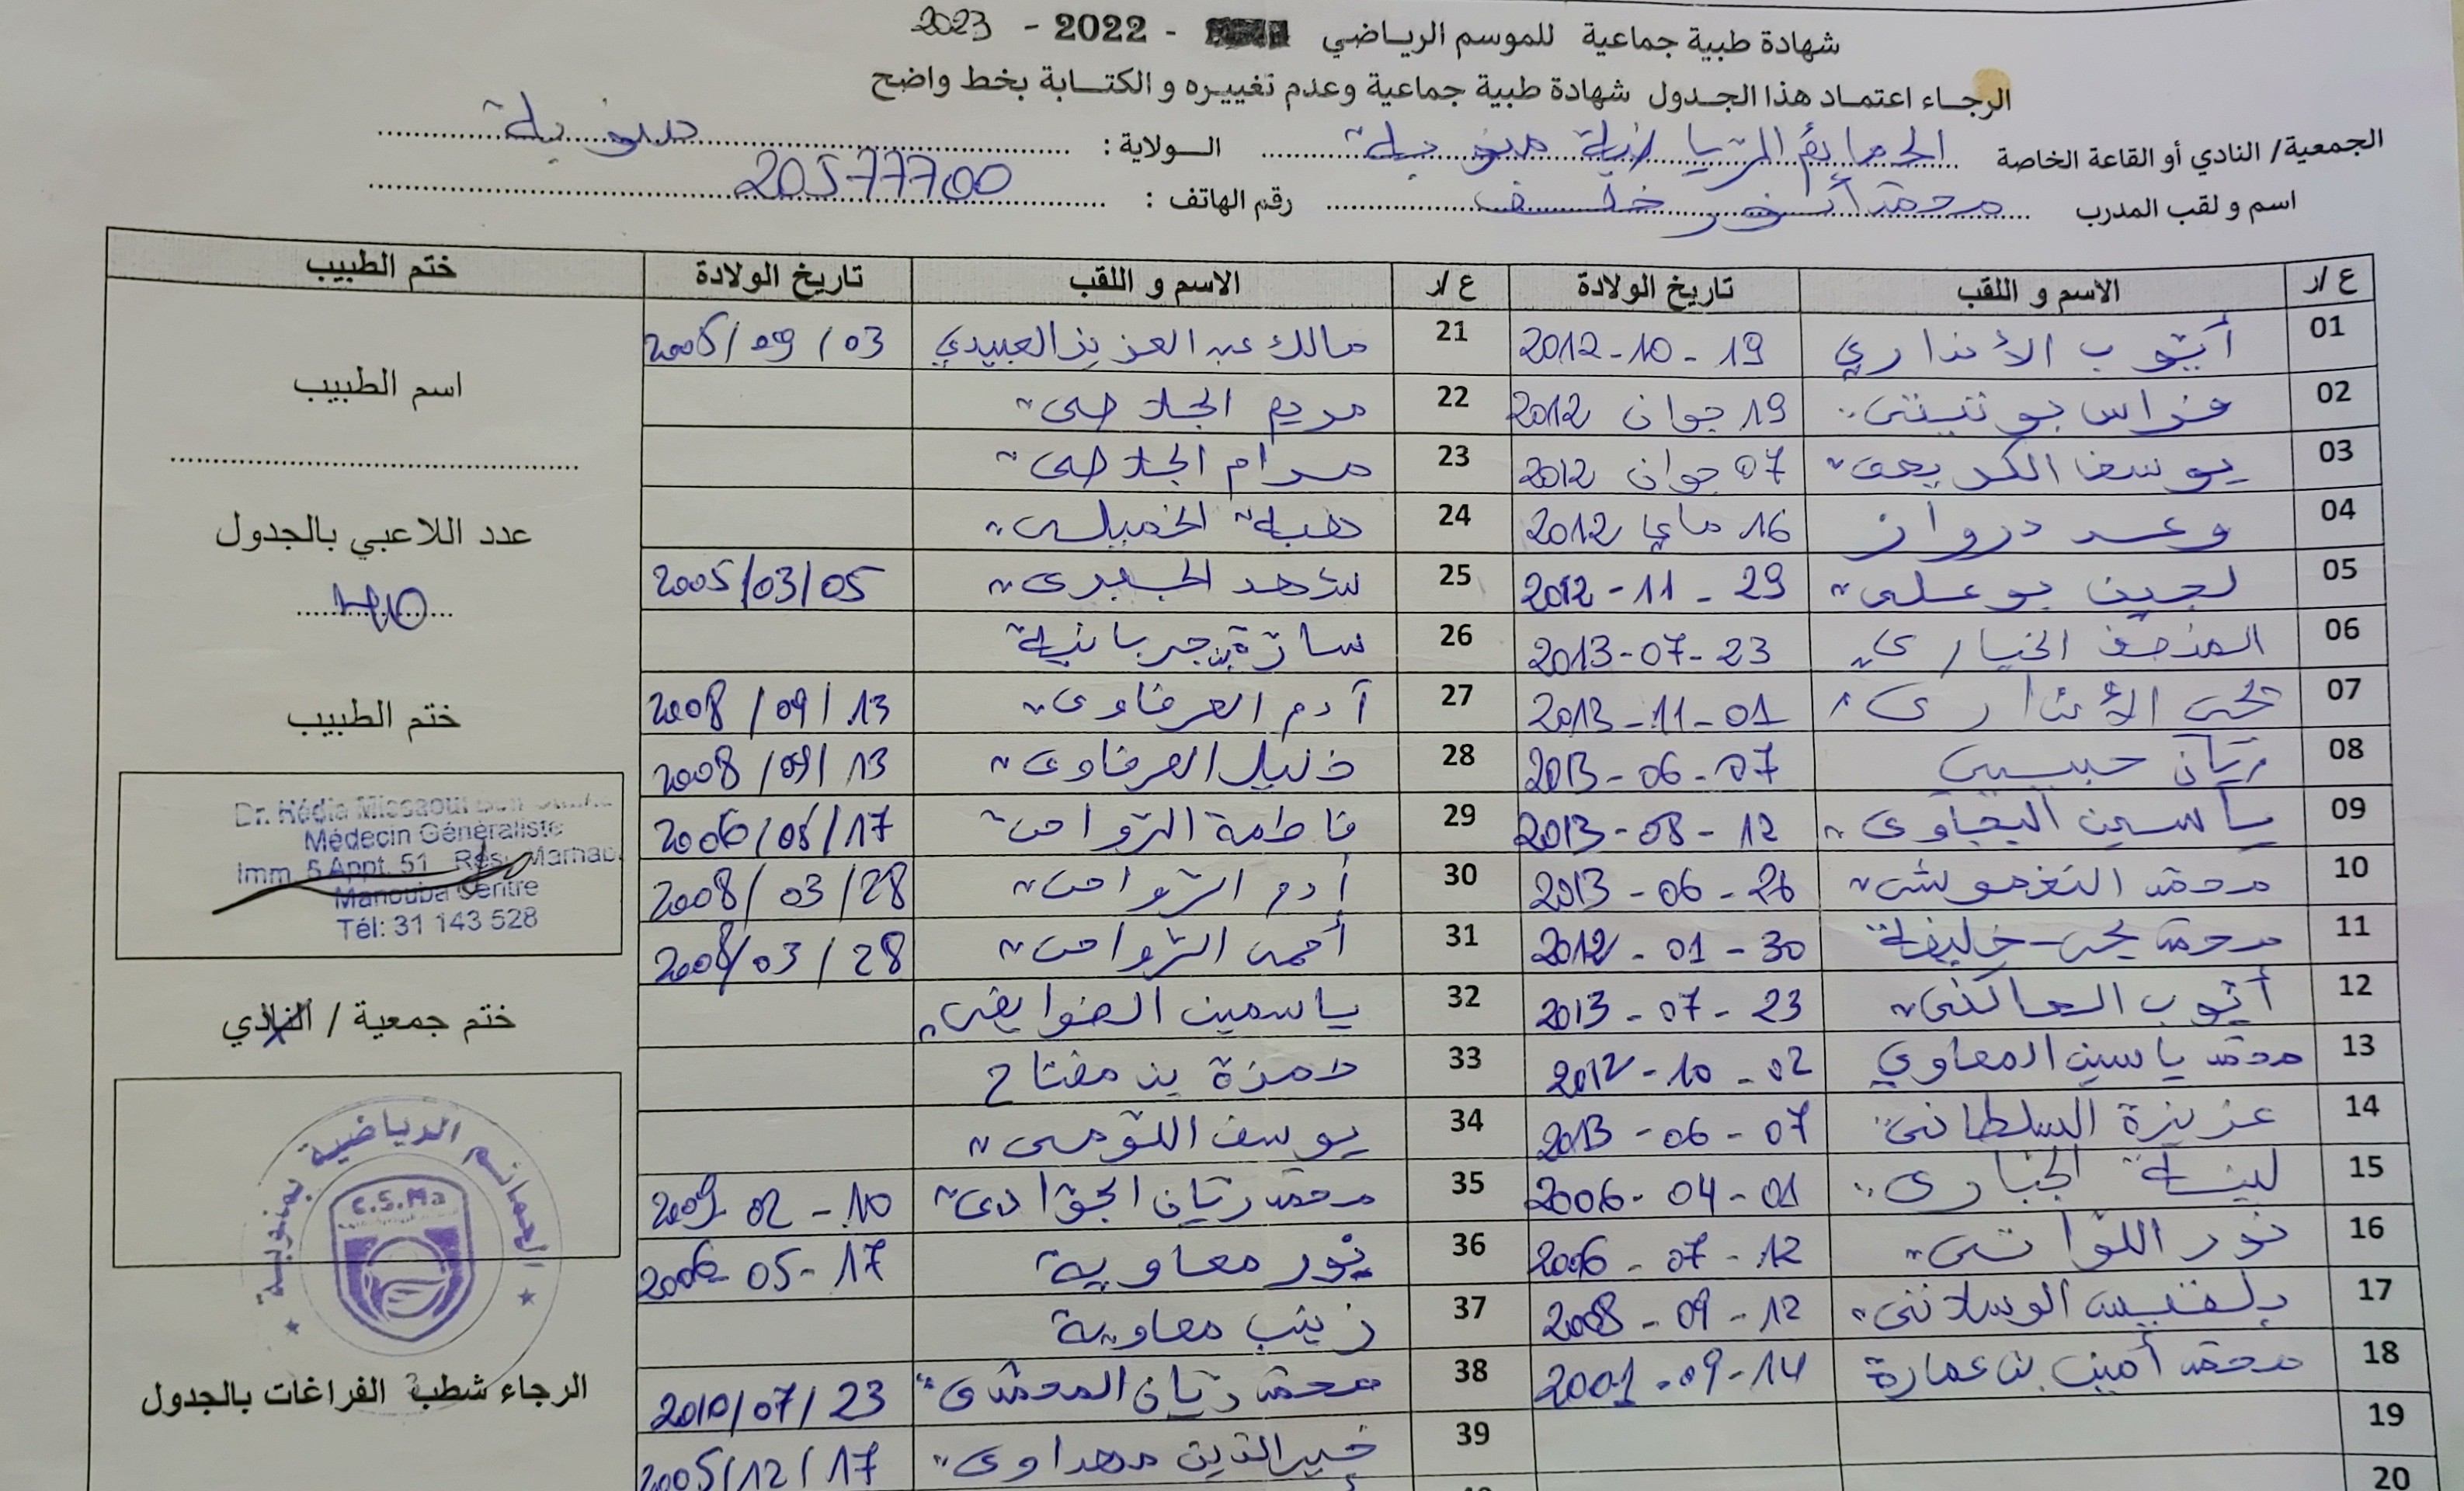 شهادة طبية جماعية للموسم الرياضي - 2022 - 2023
الرجاء اعتماد هذا الجدول شهادة طبية جماعية وعدم تغييره و الكتابة بخط واضح
الجمعية/ النادي أو القاعة الخاصة الحمايم الرياضية بمنوبة الولاية : منوبة
اسم و لقب المدرب محمد أنور خلف رقم الهاتف : 20577700
ع/ر الاسم و اللقب تاريخ الولادة ع/ر الاسم و اللقب تاريخ الولادة ختم الطبيب
01 أيوب الأنداري 19 - 10 - 2012 21 مالك عبد العزيز العبيدي 03 / 09 / 2005
02 فراس بوتيتي 19 جوان 2012 22 مريم الجلاصي
03 يوسف الكريمي 07 جوان 2012 23 مرام الجلاصي
04 وعد درواز 16 ماي 2012 24 هبة الخميلي
05 لجين بوعلي 29 - 11 - 2012 25 شهد الجبري 05/03/2005
06 المنصف الخياري 23-07-2013 26 سارة بن جربانية
07 يحي الأنداري 01-11-2013 27 آدم العرفاوي 13 / 09 / 2008
08 ريان حبيبي 07 - 06 - 2013 28 نبيل العرفاوي 13 / 09 / 2008
09 ياسين البجاوي 12 - 08 - 2013 29 فاطمة الزواحي 17/05/2006
10 محمد النغموشي 26 - 06 - 2013 30 آدم الزواحي 28 / 03 / 2008
11 محمد يحي خليفة 30 - 01 - 2012 31 أحمد الزواحي 28 / 03 / 2008
12 أيوب العاكفي 23 - 07 - 2013 32 ياسمين الضوايفي
13 محمد ياسين المعاوي 02 - 10 - 2012 33 حمزة بن مفتاح
14 عزيزة السلطاني 07 - 06 - 2013 34 يوسف اللومي
15 لينة الجباري 01 - 04 - 2006 35 محمد ريان الجوادي 10 - 02 - 2009
16 نور اللواتي 12 - 07 - 2006 36 نور معاوية 17 - 05 - 2006
17 بلقيس الوسلاتي 12 - 09 - 2008 37 زينب معاوية
18 محمد أمين بن عمارة 14 - 09 - 2001 38 محمد ريان المحمدي 23 / 07 / 2010
19 39 خير الدين مهداوي 17 / 12 / 2005
20
اسم الطبيب
عدد اللاعبي بالجدول
40
ختم الطبيب
Dr. Hédia Missaoui
Médecin Généraliste
Imm. 5 Appt. 51 Rés.
Manouba Centre
Tél: 31 143 528
ختم جمعية / النادي
الحمائم الرياضية بمنوبة
C.S.Ma
الرجاء شطب الفراغات بالجدول